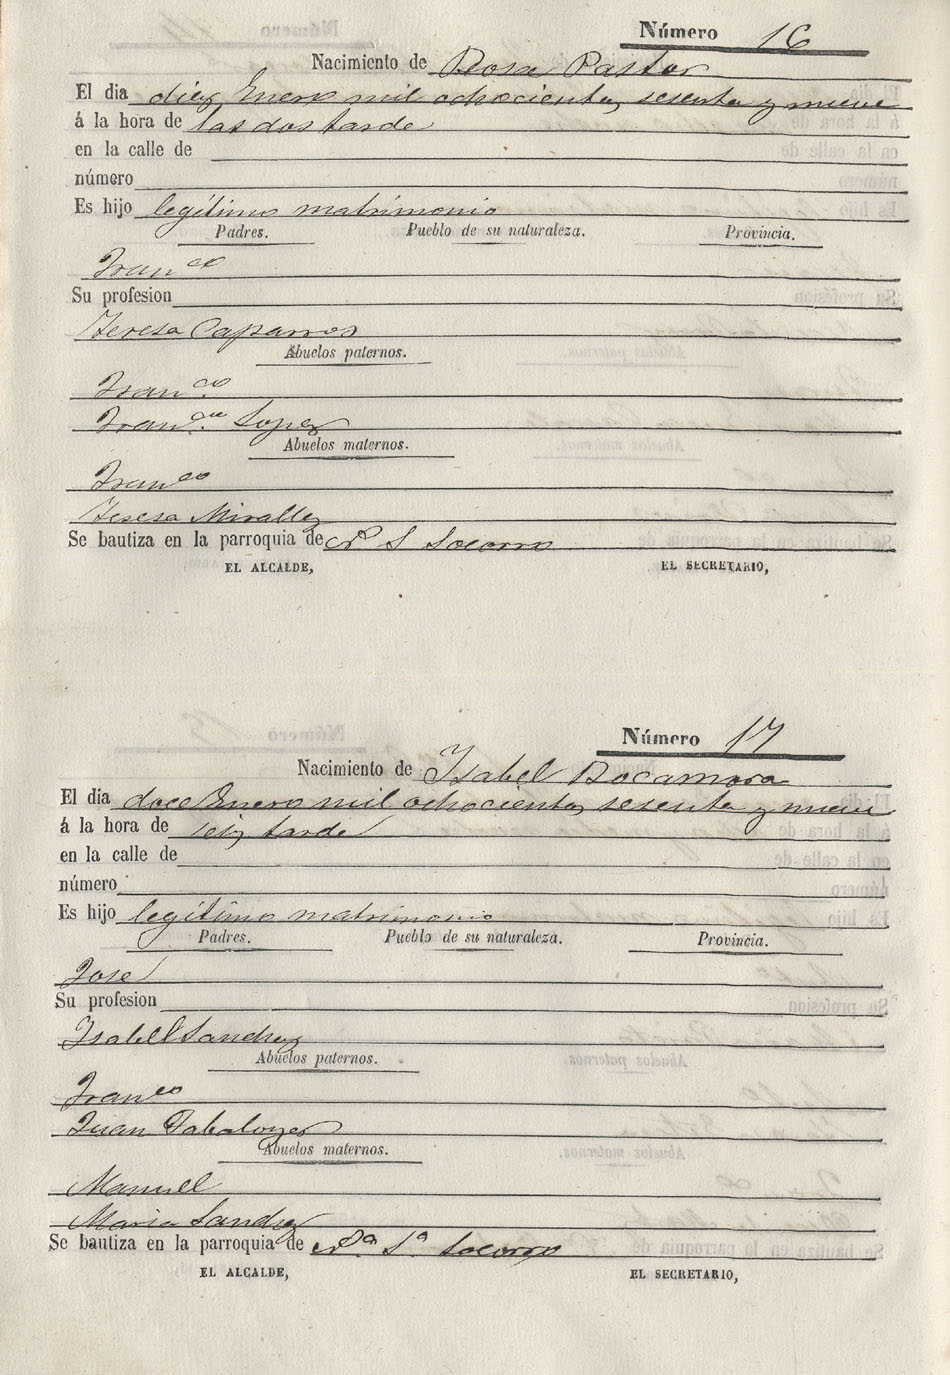 Número 16
Nacimiento de Rosa Pastor
El dia diez Enero mil ochocientos sesenta y nueve
á la hora de las dos tarde
en la calle de
número
Es hijo legítimo matrimonio
Padres. Pueblo de su naturaleza. Provincia.
Franco
Su profesion
Teresa Caparros
Abuelos paternos.
Franco
Lopez
Abuelos maternos.
Franco
Teresa Miralles
Se bautiza en la parroquia de Socorro
EL ALCALDE, EL SECRETARIO,
Número 17
Nacimiento de Isabel Rocamora
El dia doce Enero mil ochocientos sesenta y nueve
á la hora de seis tarde
en la calle de
número
Es hijo legítimo matrimonio
Padres. Pueblo de su naturaleza. Provincia.
José
Su profesion
Isabel Sanchez
Abuelos paternos.
Franco
Juan
Abuelos maternos.
Manuel
Maria Sanchez
Se bautiza en la parroquia de Sa Socorro
EL ALCALDE, EL SECRETARIO,